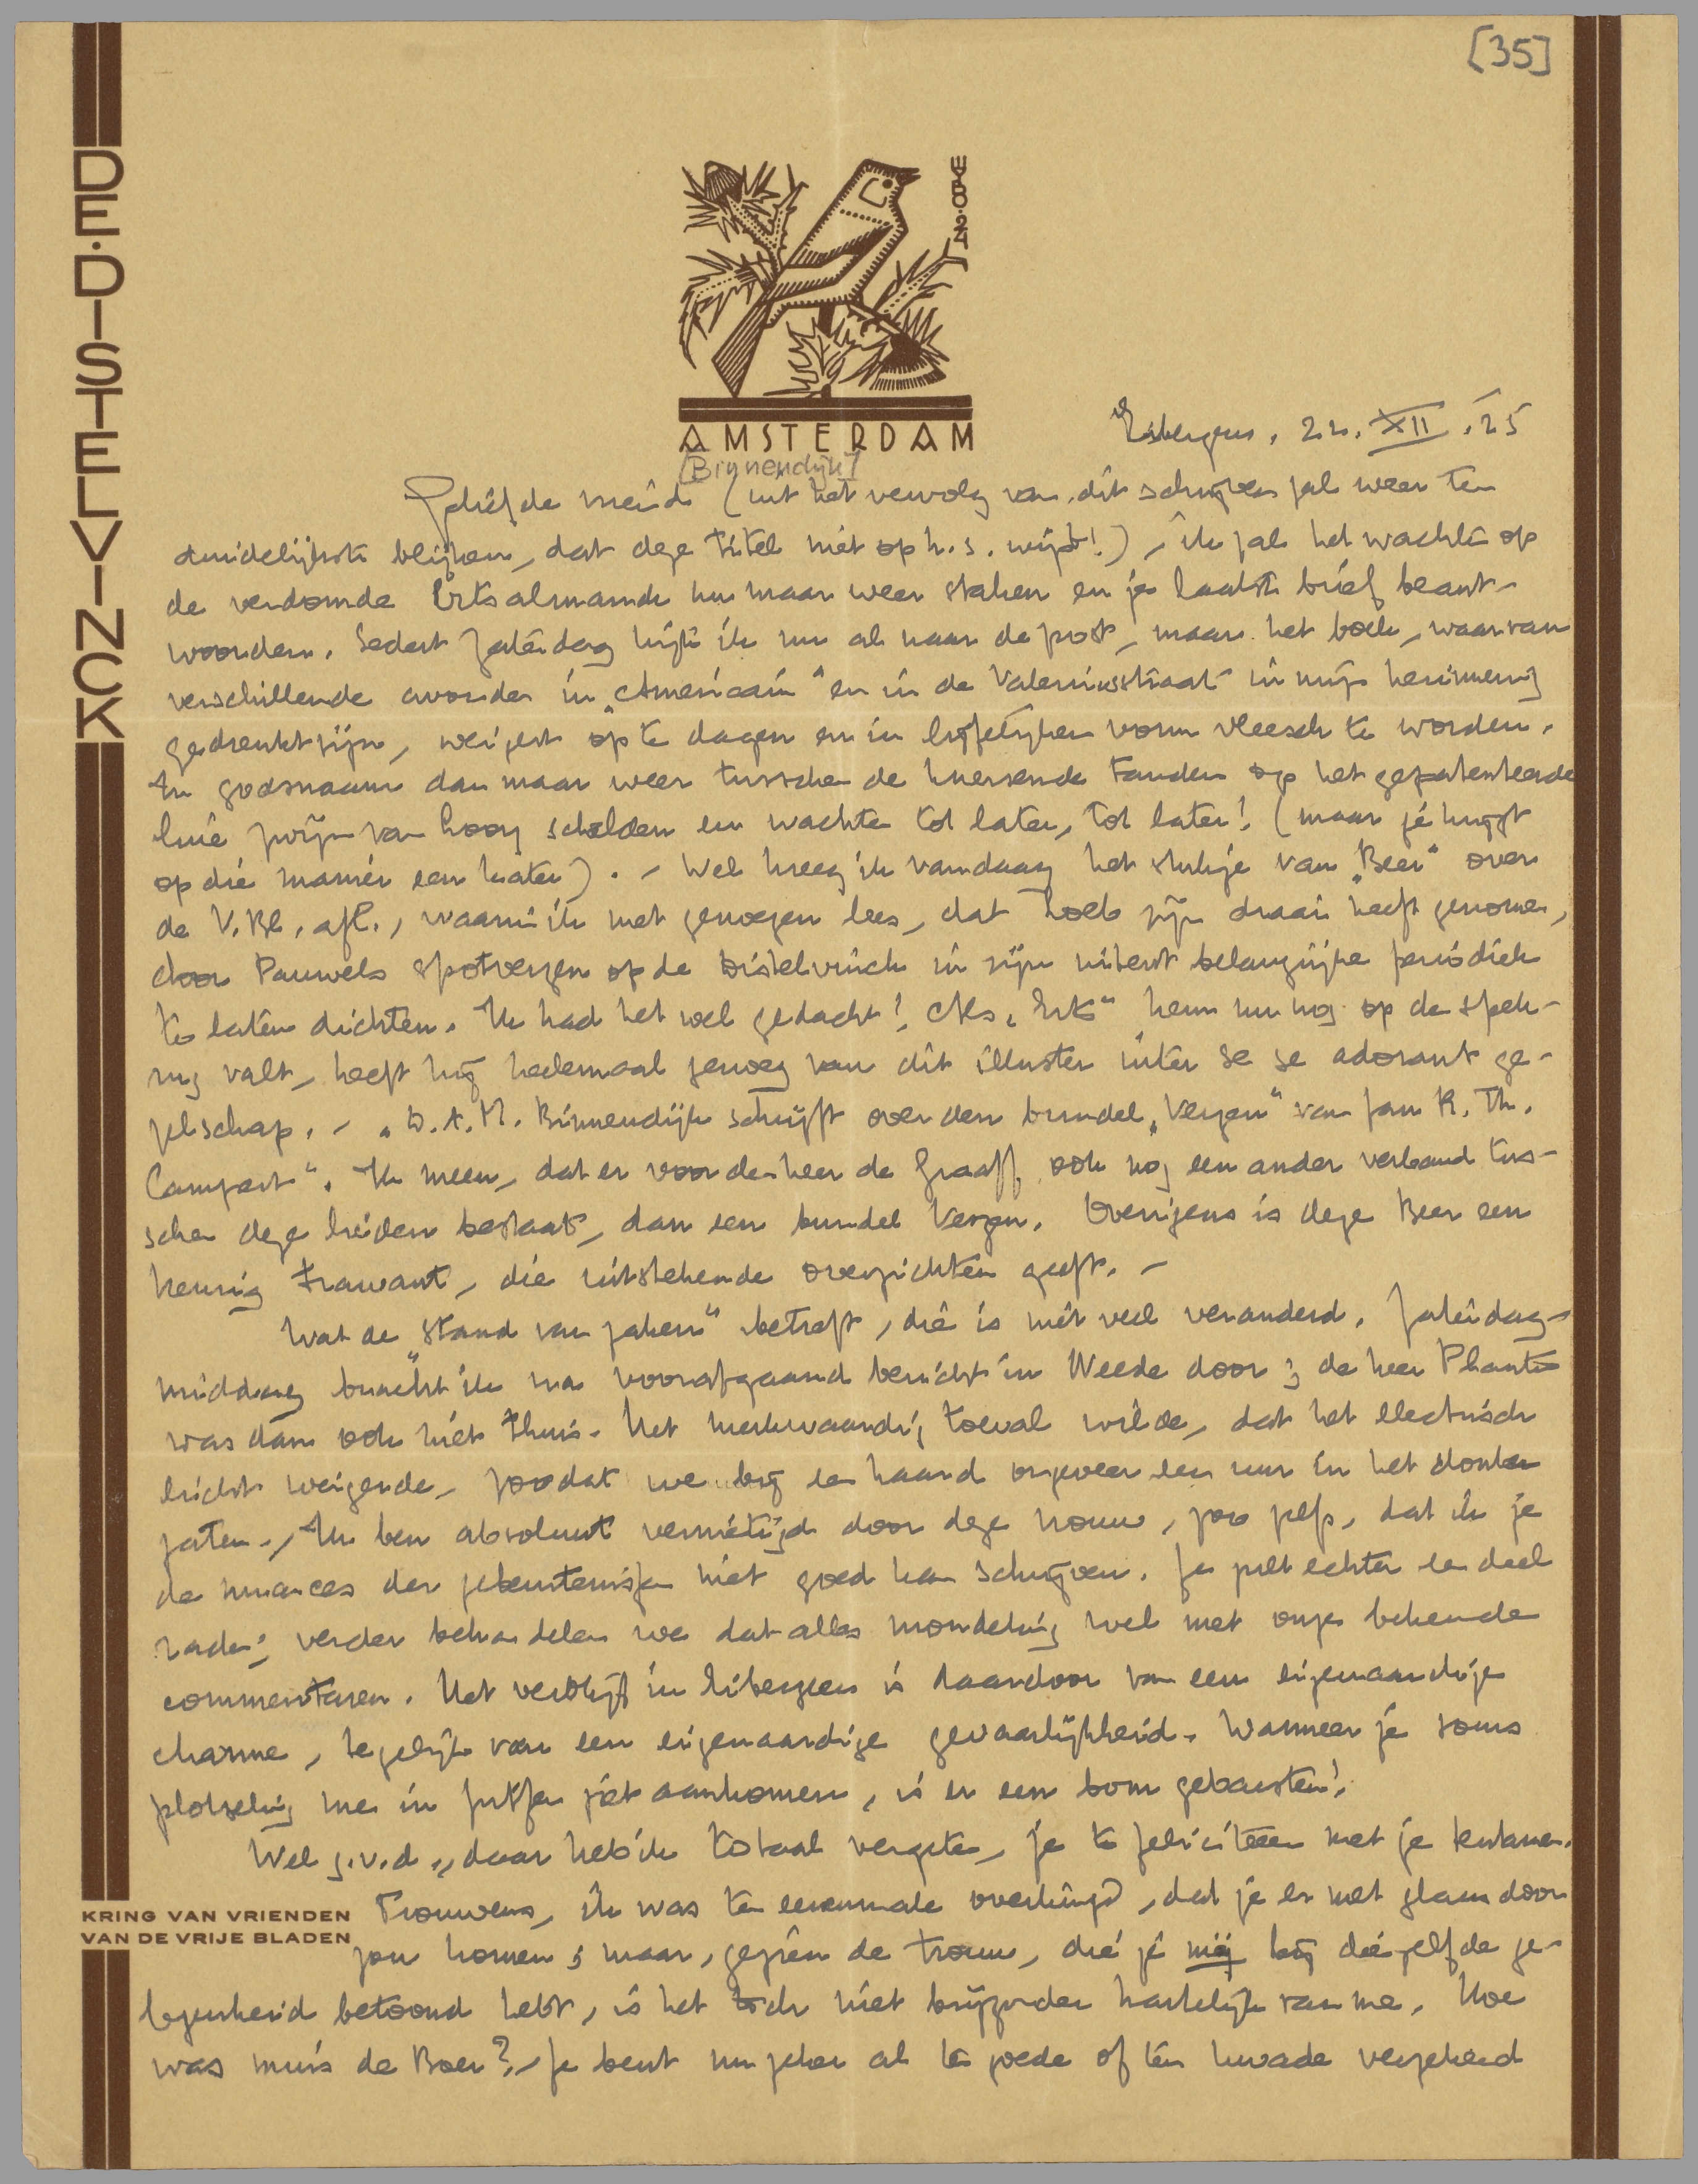 [35]
DE·DISTELVINCK
AMSTERDAM
[Binnendijk]
Eibergen, 22. XII. '25
Geliefde vriend (uit het vervolg van dit schrijven zal weer ten
duidelijkste blijken, dat deze titel niet op h.s. wijst!), ik zal het wachten op
de verdomde Erts almanak nu maar weer staken en je laatste brief beant-
woorden. Sedert Zaterdag kijk ik nu al naar de post, maar het boek, waarvan
verschillende avonden in „Americain" en in de Valeriusstraat in mijn herinnering
gedrenkt zijn, weigert op te dagen en in lijfelijken vorm vleesch te worden.
In godsnaam dan maar weer tusschen de knersende tanden op het gepatenteerde
luie zwijn van Kooy schelden en wachten tot later, tot later! (maar je krijgt
op die manier een kater). – Wel kreeg ik vandaag het stukje van „Beer" over
de V. Bl. afl., waarin ik met genoegen lees, dat Loeb zijn draai heeft genomen,
door Pauwels spotverzen op de Distelvinck in zijn uiterst belangrijke periodiek
te laten dichten. Ik had het wel gedacht! Als „Erts" hem nu nog op de spek-
rug valt, heeft hij heelemaal genoeg van dit illuster inter se se adorant ge-
zelschap. – „D.A.M. Binnendijk schrijft over den bundel „Verzen" van Jan R. Th.
Campert". Ik meen, dat er voor den heer de Graaff ook nog een ander verband tus-
schen deze lieden bestaat, dan een bundel Verzen. Overigens is deze Beer een
keurig trawant, die uitstekende overzichten geeft. –
Wat de „stand van zaken" betreft, die is niet veel veranderd. Zaterdag-
middag bracht ik na voorafgaand bericht in Weede door; de heer Plante
was dan ook niet thuis. Het merkwaardig toeval wilde, dat het electrisch
licht weigerde, zoodat we bij een haard ongeveer een uur in het donker
zaten. Ik ben absoluut vernietigd door deze vrouw, zoo zelfs, dat ik je
de nuances der gebeurtenissen niet goed kan schrijven. Je zult echter een deel
raden; verder behandelen we dat alles mondeling wel met onze bekende
commentaren. Het verblijf in Eibergen is daardoor van een eigenaardige
charme, tegelijk van een eigenaardige gevaarlijkheid. Wanneer je soms
plotseling me in Zutfen ziet aankomen, is er een bom gebarsten!
Wel g.v.d., daar heb ik totaal vergeten, je te feliciteeren met je tentamen.
Trouwens, ik was ten eenenmale overtuigd, dat je er met glans door
KRING VAN VRIENDEN
VAN DE VRIJE BLADEN
zou komen; maar, gezien de trouw, die je mij bij diezelfde ge-
legenheid betoond hebt, is het toch niet bijzonder hartelijk van me. Hoe
was muis de Boer? – Je bent nu zeker al ten goede of ten kwade verzekerd